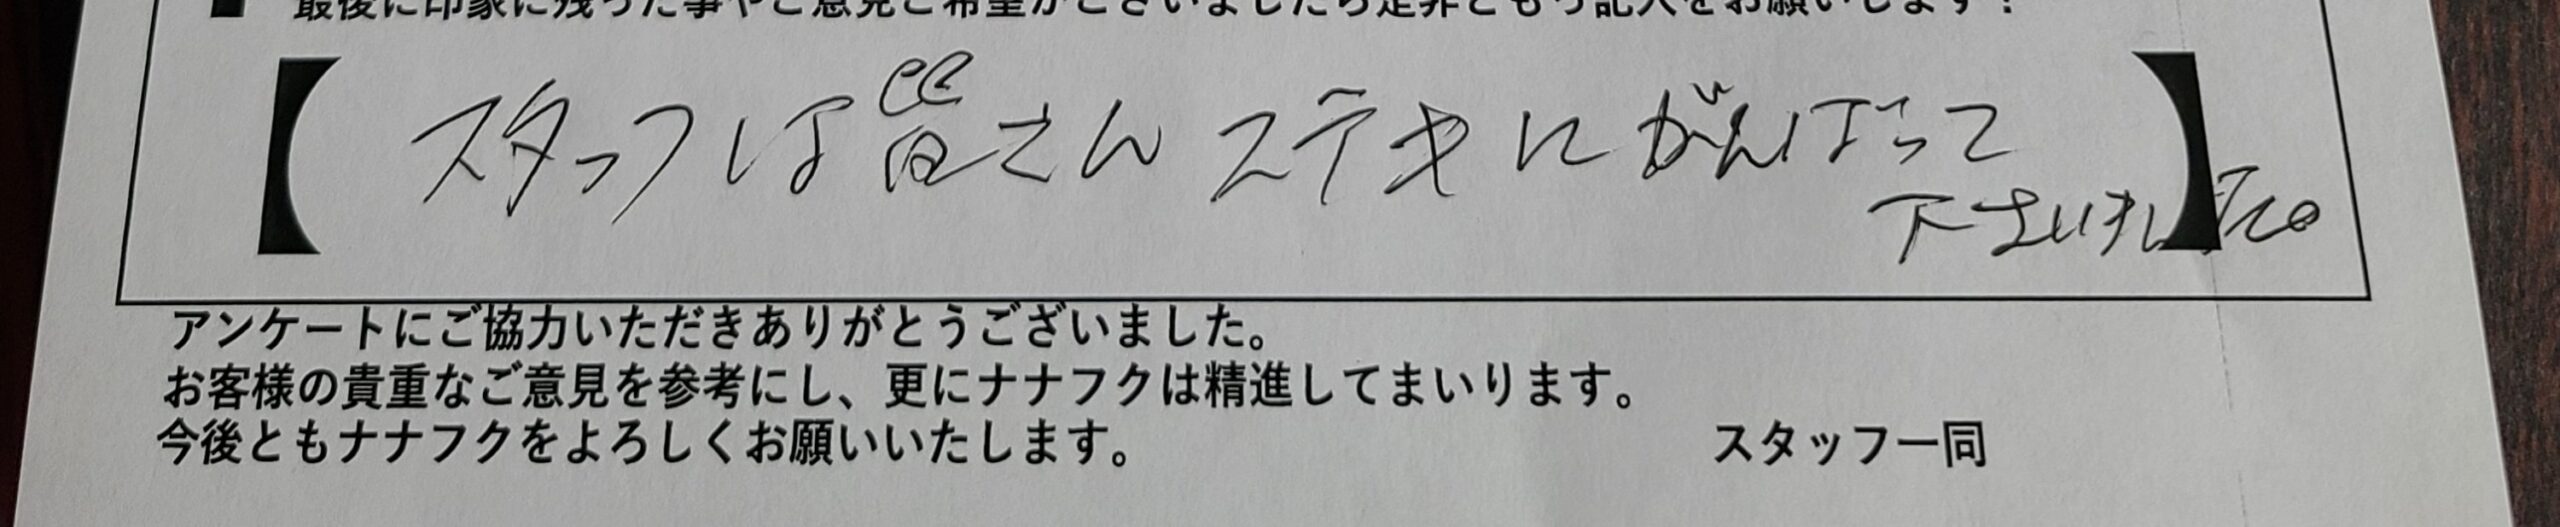 ■ 最後に印象に残った事やご意見ご希望がございましたら是非ともご記入をお願いします!
【スタッフは皆さんステキにがんばって
下さいました。】
アンケートにご協力いただきありがとうございました。
お客様の貴重なご意見を参考にし、更にナナフクは精進してまいります。
今後ともナナフクをよろしくお願いいたします。 スタッフ一同